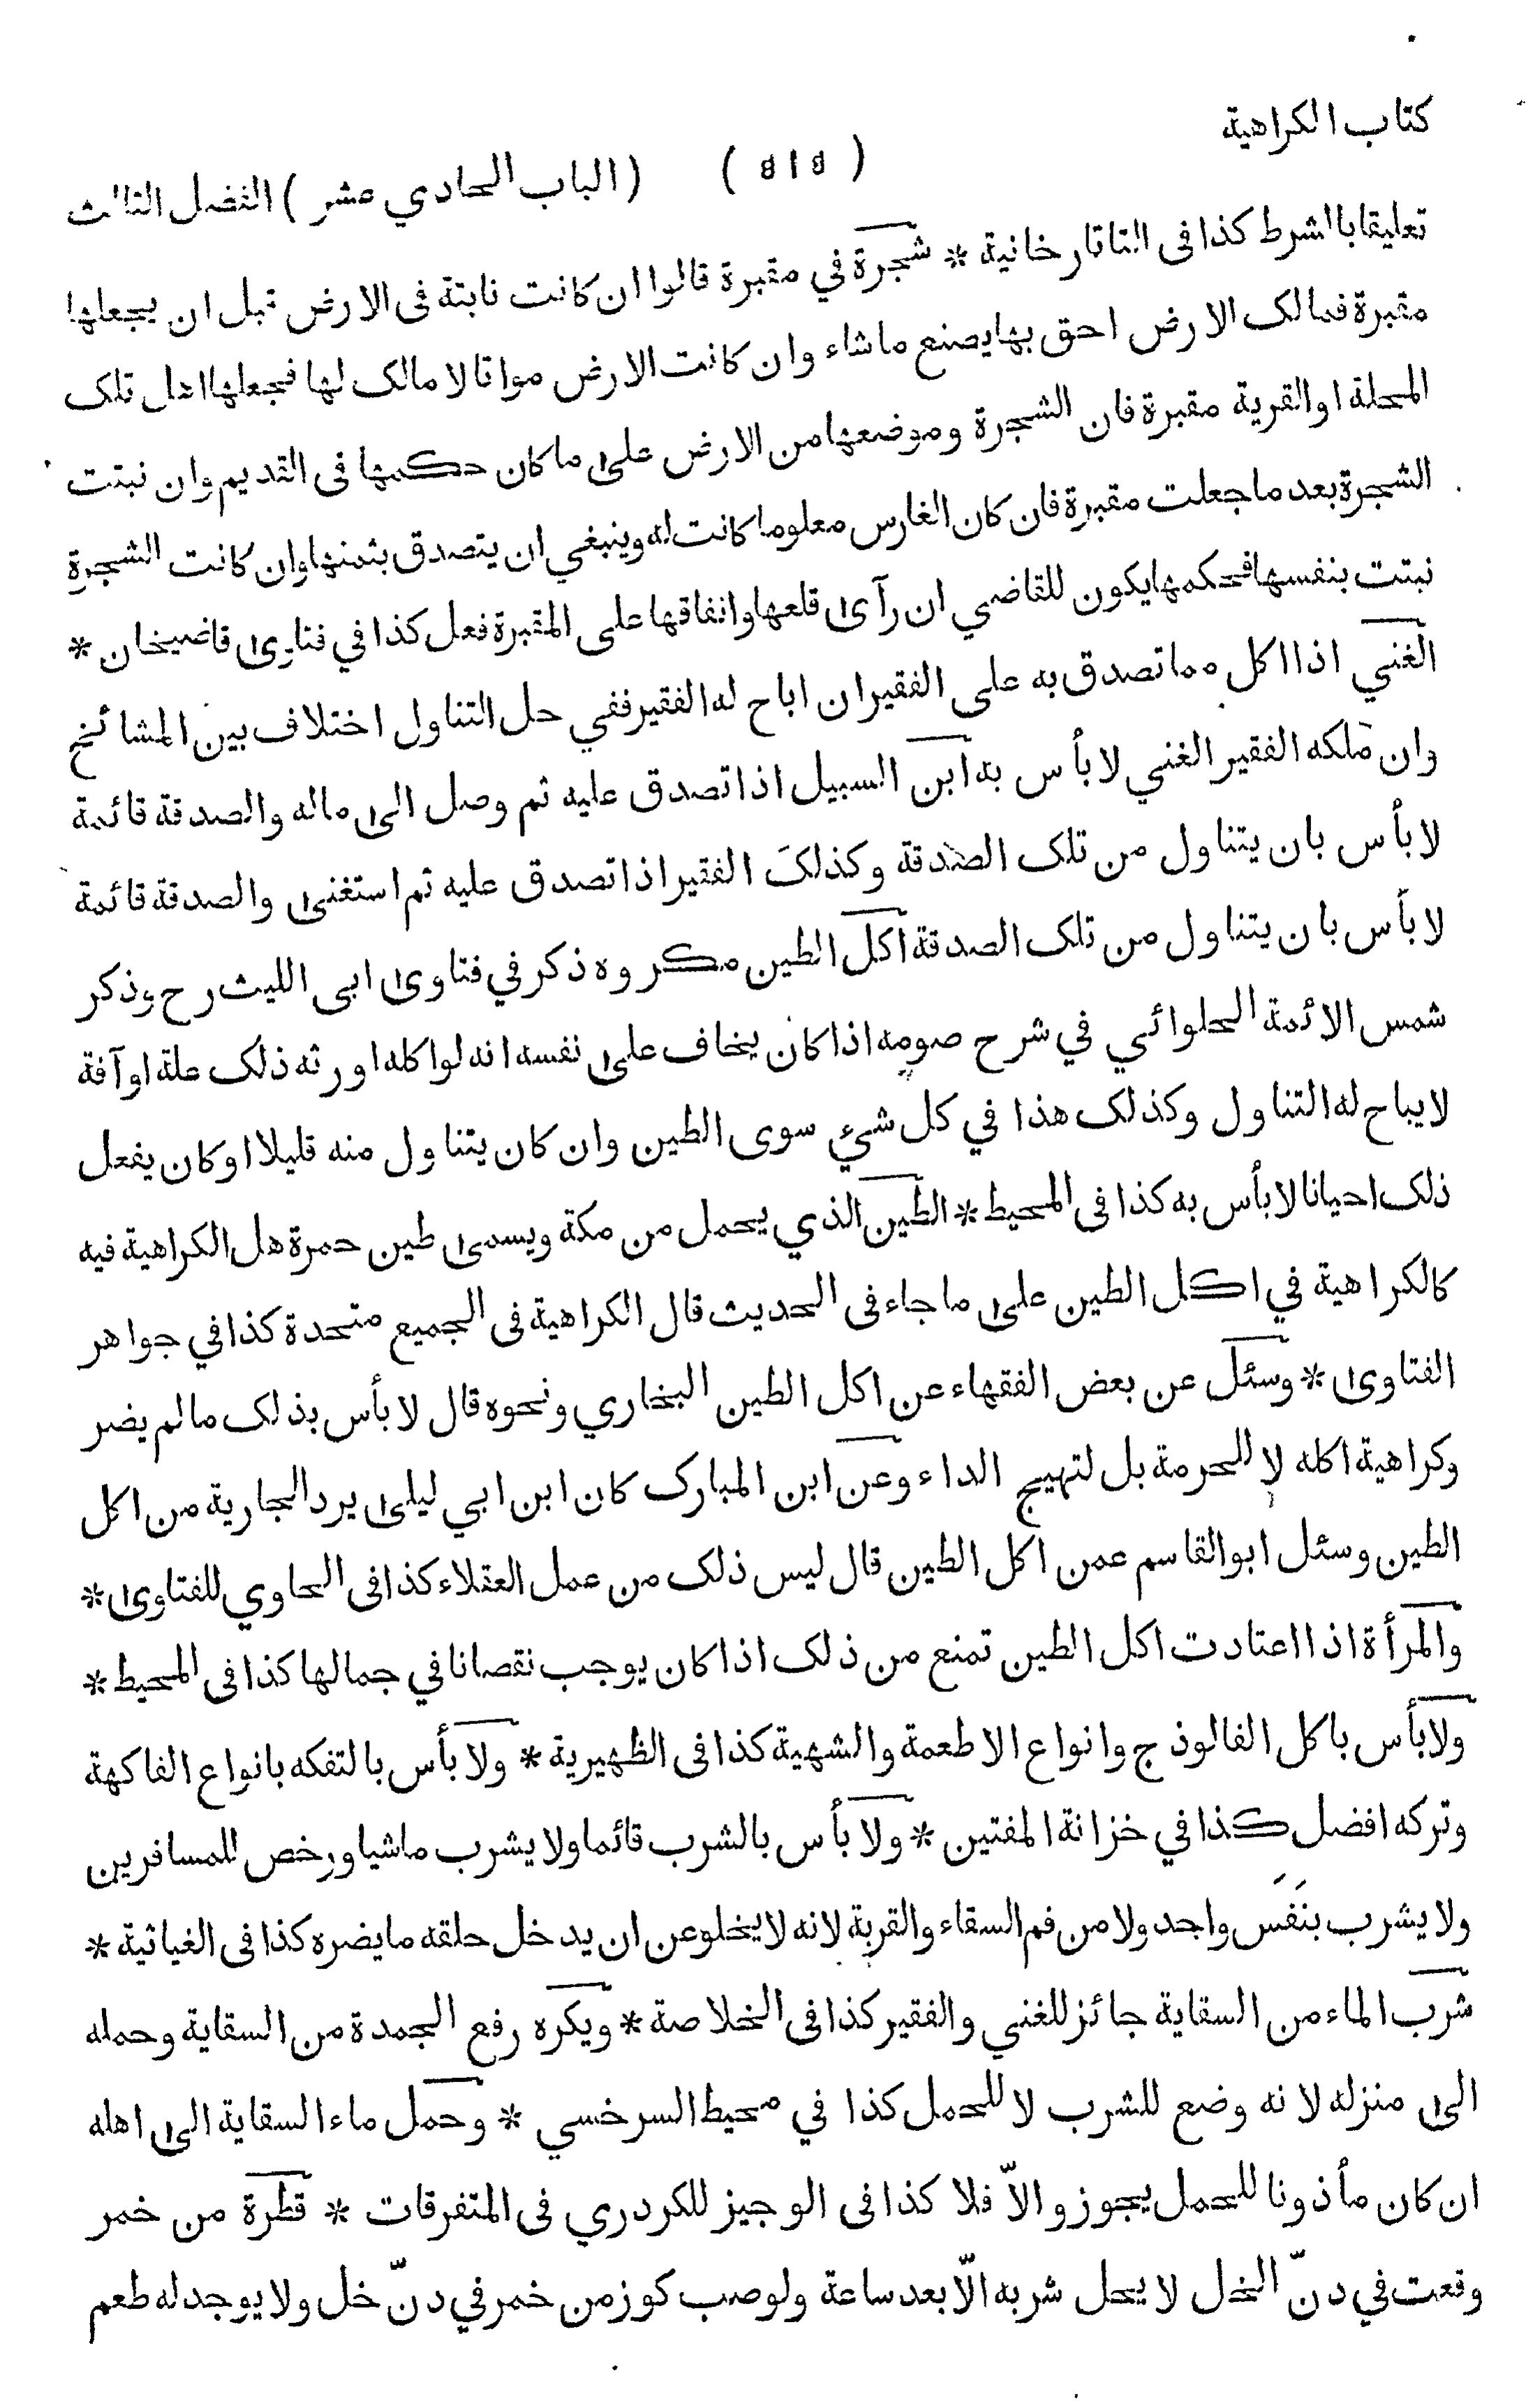 كتاب الكراهية
( ٥١٥ )
( الباب الحادي عشر ) الفصل الثالث
تعليقا بالشرط كذا فى التاتارخانية * شجرة في مقبرة قالوا ان كانت نابتة فى الارض قبل ان يجعلها
مقبرة فمالك الارض احق بها يصنع ما شاء وان كانت الارض مواتا لا مالك لها فجعلها اهل تلك
المحلة او القرية مقبرة فان الشجرة وموضعها من الارض على ما كان حكمها فى القديم وان نبتت
الشجرة بعد ما جعلت مقبرة فان كان الغارس معلوما كانت له وينبغي ان يتصدق بثمنها وان كانت الشجرة
نبتت بنفسها فحكمها يكون للقاضي ان رآى قلعها وانفاقها على المقبرة فعل كذا في فتاوى قاضيخان *
الغني اذا اكل مما تصدق به على الفقير ان اباح له الفقير ففي حل التناول اختلاف بين المشائخ
وان ملكه الفقير الغني لا بأس به ابن السبيل اذا تصدق عليه ثم وصل الى ماله والصدقة قائمة
لا بأس بان يتناول من تلك الصدقة وكذلك الفقير اذا تصدق عليه ثم استغنى والصدقة قائمة
لا بأس بان يتناول من تلك الصدقة اكل الطين مكروه ذكر في فتاوى ابى الليث رح وذكر
شمس الائمة الحلوائي في شرح صومه اذا كان يخاف على نفسه انه لو اكله اورثه ذلك علة او آفة
لا يباح له التناول وكذلك هذا في كل شيء سوى الطين وان كان يتناول منه قليلا او كان يفعل
ذلك احيانا لا بأس به كذا فى المحيط * الطين الذي يحمل من مكة ويسمى طين حمرة هل الكراهية فيه
كالكراهية في اكل الطين على ما جاء فى الحديث قال الكراهية فى الجميع متحدة كذا في جواهر
الفتاوى * وسئل عن بعض الفقهاء عن اكل الطين البخاري ونحوه قال لا بأس بذلك ما لم يضر
وكراهية اكله لا للحرمة بل لتهييج الداء وعن ابن المبارك كان ابن ابي ليلى يرد الجارية من اكل
الطين وسئل ابو القاسم عمن اكل الطين قال ليس ذلك من عمل العقلاء كذا فى الحاوي للفتاوى *
والمرأة اذا اعتادت اكل الطين تمنع من ذلك اذا كان يوجب نقصانا في جمالها كذا فى المحيط *
ولا بأس باكل الفالوذج وانواع الاطعمة والشهية كذا فى الظهيرية * ولا بأس بالتفكه بانواع الفاكهة
وتركه افضل كذا في خزانة المفتين * ولا بأس بالشرب قائما ولا يشرب ماشيا ورخص للمسافرين
ولا يشرب بنَفَس واحد ولا من فم السقاء والقربة لانه لا يخلو عن ان يدخل حلقه ما يضره كذا فى الغياثية *
شرب الماء من السقاية جائز للغني والفقير كذا فى الخلاصة * ويكره رفع الجمدة من السقاية وحمله
الى منزله لانه وضع للشرب لا للحمل كذا في محيط السرخسي * وحمل ماء السقاية الى اهله
ان كان مأذونا للحمل يجوز والاّ فلا كذا فى الوجيز للكردري فى المتفرقات * قطرة من خمر
وقعت في دنّ الخل لا يحل شربه الاّ بعد ساعة ولو صب كوز من خمر في دنّ خل ولا يوجد له طعم